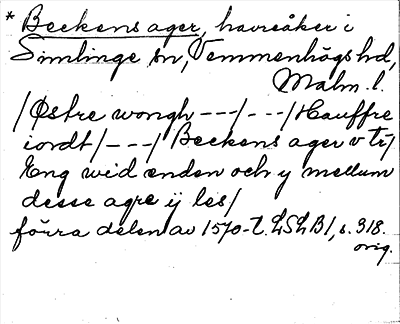 * Beckens ager, havreåker i
Simlinge sn, Vemmenhögs hd,
Malm. l.
/Østre wongh ---/---/Hauffre
iordt/---/Beckens ager v tř/
Eng wid enden och y mellum
desse agre ij les/
förra delen av 1570-t. LSLB1, s. 318.
orig.